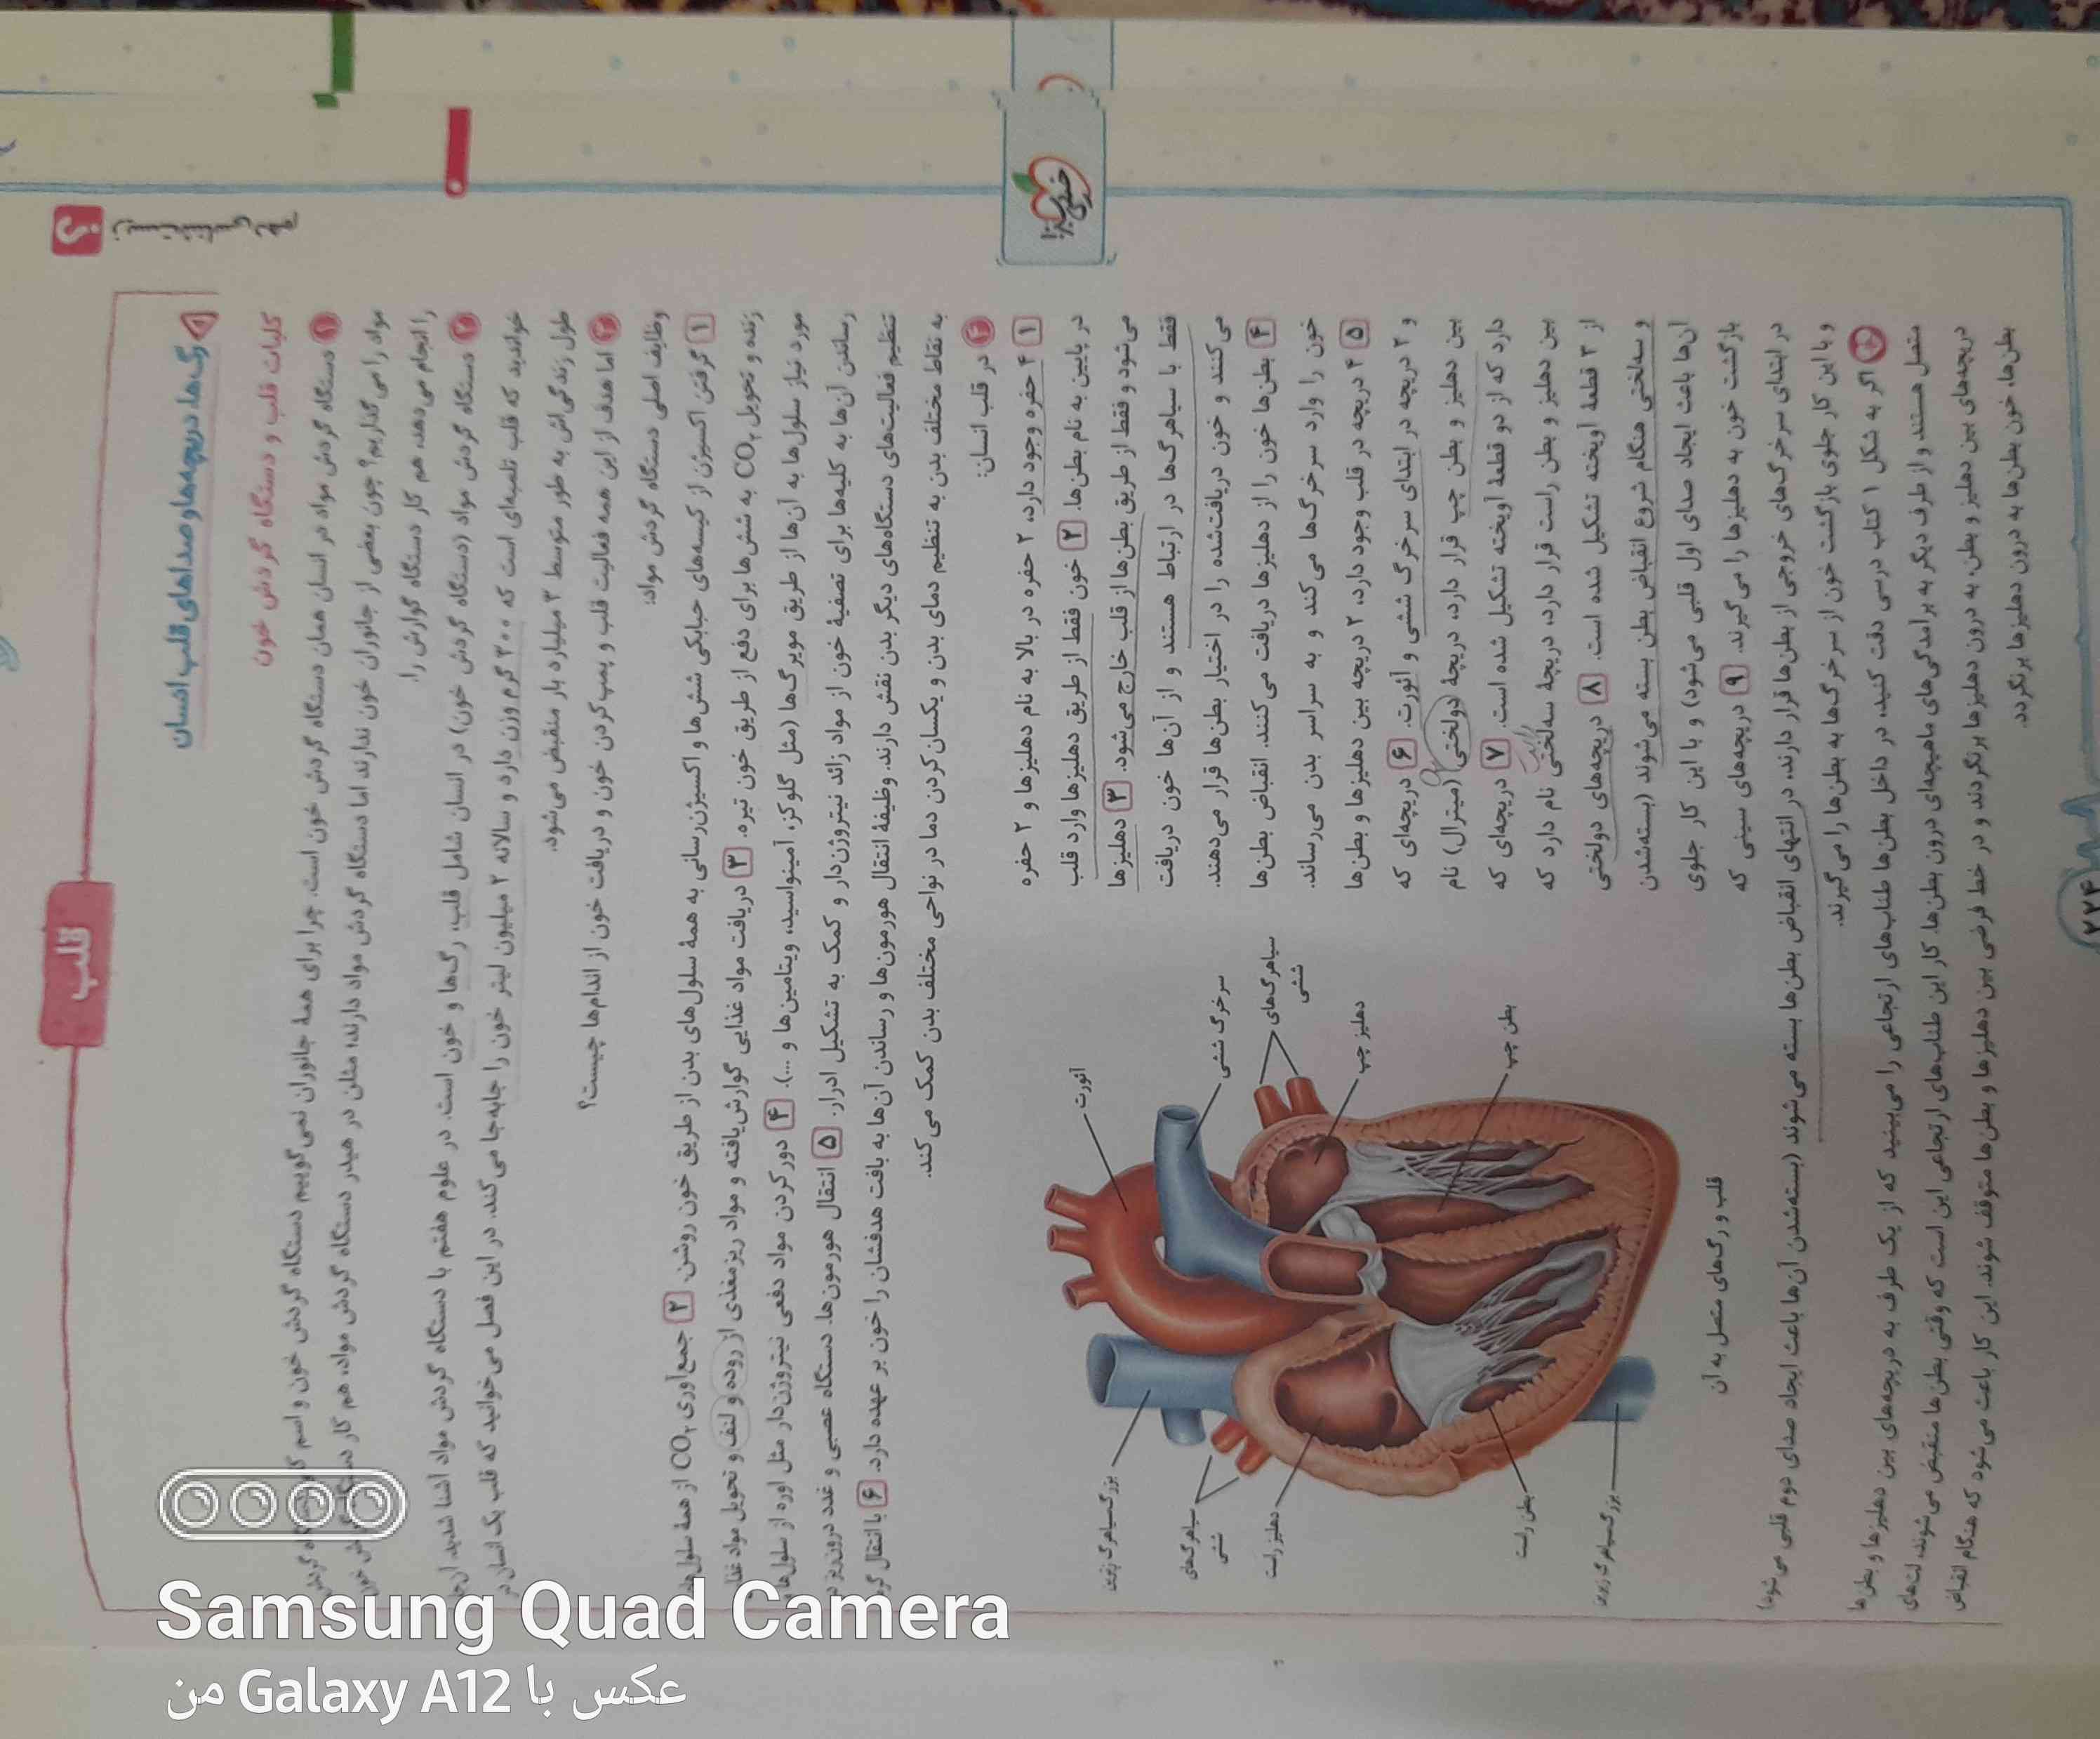 قلب
رگ‌ها، دریچه‌ها و صداهای قلب انسان
کلیات قلب و دستگاه گردش خون
۱ دستگاه گردش مواد در انسان همان دستگاه گردش خون است. چرا برای همهٔ جانوران نمی‌گوییم دستگاه گردش خون و اسم گردش
مواد را می‌گذاریم؟ چون بعضی از جانوران خون ندارند اما دستگاه گردش مواد دارند؛ مثلن در هیدر دستگاه گردش مواد، هم کار خون
را انجام می‌دهد، هم کار دستگاه گوارش را.
۲ دستگاه گردش مواد (دستگاه گردش خون) در انسان شامل قلب، رگ‌ها و خون است. در علوم هفتم با دستگاه گردش مواد آشنا شدید.
خواندید که قلب تلمبه‌ای است که ۳۰۰ گرم وزن دارد و سالانه ۲ میلیون لیتر خون را جابه‌جا می‌کند. در این فصل می‌خوانید که قلب یک انسان در
طول زندگی‌اش به طور متوسط ۳ میلیارد بار منقبض می‌شود.
۳ اما هدف از این همه فعالیت قلب و پمپ کردن خون و دریافت خون از اندام‌ها چیست؟
وظایف اصلی دستگاه گردش مواد:
۱ گرفتن اکسیژن از کیسه‌های حبابکی شش‌ها و اکسیژن‌رسانی به همهٔ سلول‌های بدن از طریق خون روشن. ۲ جمع‌آوری CO₂ از همهٔ سلول‌های
زنده و تحویل CO₂ به شش‌ها برای دفع از طریق خون تیره. ۳ دریافت مواد غذایی گوارش‌یافته و مواد ریزمغذی از روده و لنف و تحویل مواد
مورد نیاز سلول‌ها به آن‌ها از طریق مویرگ‌ها (مثل گلوکز، آمینواسید، ویتامین‌ها و ...). ۴ دور کردن مواد دفعی نیتروژن‌دار مثل اوره از سلول‌ها
رساندن آن‌ها به کلیه‌ها برای تصفیهٔ خون از مواد زائد نیتروژن‌دار و کمک به تشکیل ادرار. ۵ انتقال هورمون‌ها. دستگاه عصبی و غدد درون‌ریز
تنظیم فعالیت‌های دستگاه‌های دیگر بدن نقش دارند. وظیفهٔ انتقال هورمون‌ها و رساندن آن‌ها به بافت هدفشان را خون بر عهده دارد. ۶ با انتقال
به نقاط مختلف بدن به تنظیم دمای بدن و یکسان کردن دما در نواحی مختلف بدن کمک می‌کند.
۴ در قلب انسان:
۱ ۴ حفره وجود دارد، ۲ حفره در بالا به نام دهلیزها و ۲ حفره
در پایین به نام بطن‌ها. ۲ خون فقط از طریق دهلیزها وارد قلب
می‌شود و فقط از طریق بطن‌ها از قلب خارج می‌شود. ۳ دهلیزها
فقط با سیاهرگ‌ها در ارتباط هستند و از آن‌ها خون دریافت
می‌کنند و خون دریافت‌شده را در اختیار بطن‌ها قرار می‌دهند.
۴ بطن‌ها خون را از دهلیزها دریافت می‌کنند. انقباض بطن‌ها
خون را وارد سرخرگ‌ها می‌کند و به سراسر بدن می‌رساند.
۵ ۴ دریچه در قلب وجود دارد، ۲ دریچه بین دهلیزها و بطن‌ها
و ۲ دریچه در ابتدای سرخرگ ششی و آئورت. ۶ دریچه‌ای که
بین دهلیز و بطن چپ قرار دارد، دریچهٔ دولختی (میترال) نام
دارد که از دو قطعهٔ آویخته تشکیل شده است. ۷ دریچه‌ای که
بین دهلیز و بطن راست قرار دارد، دریچهٔ سه‌لختی نام دارد که
از ۳ قطعهٔ آویخته تشکیل شده است. ۸ دریچه‌های دولختی
و سه‌لختی هنگام شروع انقباض بطن بسته می‌شوند (بسته‌شدن
آن‌ها باعث ایجاد صدای اول قلبی می‌شود) و با این کار جلوی
بازگشت خون به دهلیزها را می‌گیرند. ۹ دریچه‌های سینی که
در ابتدای سرخرگ‌های خروجی از بطن‌ها قرار دارند، در انتهای انقباض بطن‌ها بسته می‌شوند (بسته‌شدن آن‌ها باعث ایجاد صدای دوم قلبی می‌شود)
و با این کار جلوی بازگشت خون از سرخرگ‌ها به بطن‌ها را می‌گیرند.
آئورت
سرخرگ ششی
سیاهرگ‌های ششی
دهلیز چپ
بطن چپ
بزرگ‌سیاهرگ زبرین
سیاهرگ‌های ششی
دهلیز راست
بطن راست
بزرگ‌سیاهرگ زیرین
قلب و رگ‌های متصل به آن
اگر به شکل ۱ کتاب درسی دقت کنید، در داخل بطن‌ها طناب‌های ارتجاعی را می‌بینید که از یک طرف به دریچه‌های بین دهلیزها و بطن‌ها
متصل هستند و از طرف دیگر به برآمدگی‌های ماهیچه‌ای درون بطن‌ها. کار این طناب‌های ارتجاعی این است که وقتی بطن‌ها منقبض می‌شوند، لت‌های
دریچه‌های بین دهلیز و بطن، به درون دهلیزها برنگردند و در خط فرضی بین دهلیزها و بطن‌ها متوقف شوند. این کار باعث می‌شود که هنگام انقباض
بطن‌ها، خون بطن‌ها به درون دهلیزها برنگردد.
خیلی سبز
۲۲۴
Samsung Quad Camera
عکس با Galaxy A12 من